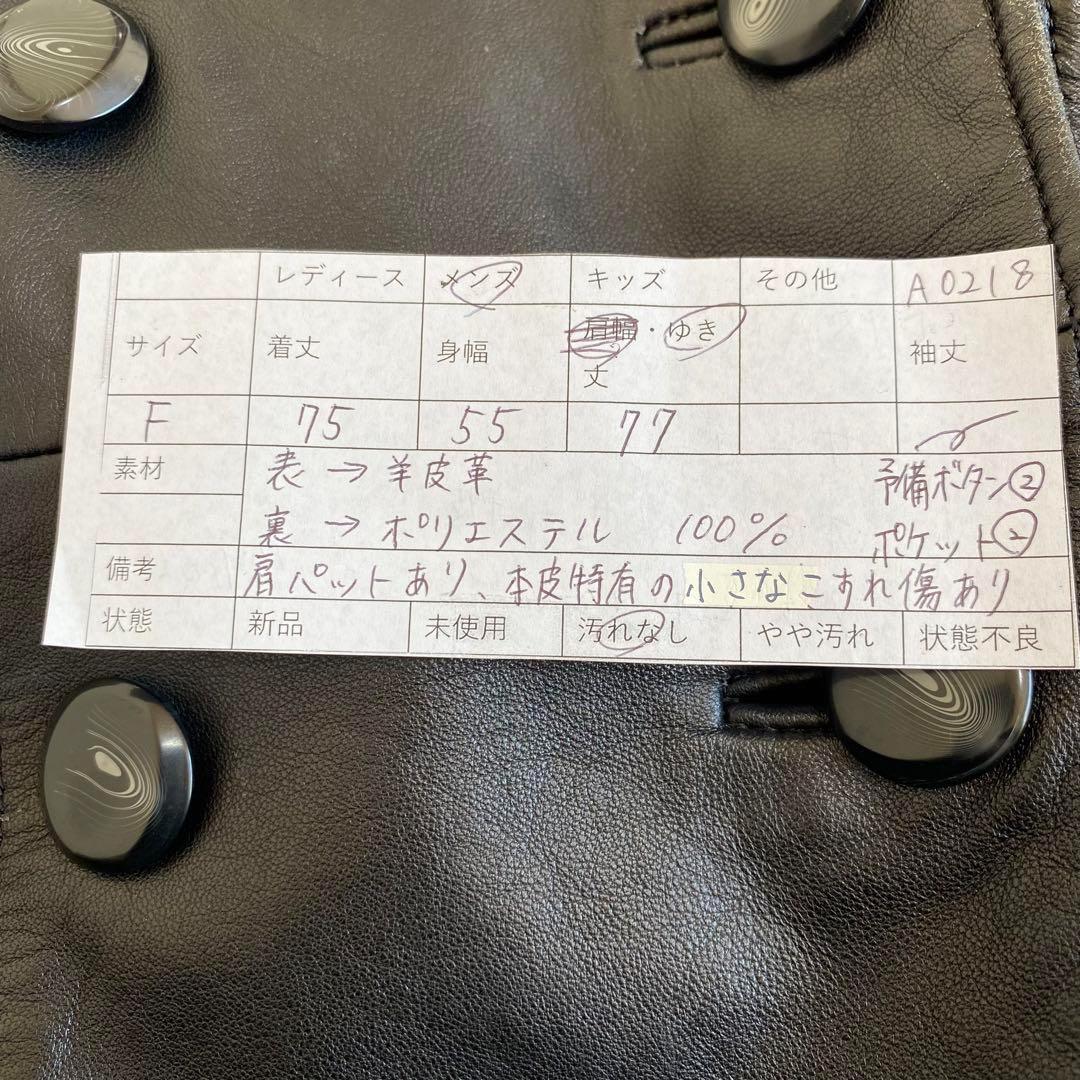 レディース メンズ キッズ その他 A0218
サイズ 着丈 身幅 肩幅・ゆき丈 袖丈
F 75 55 77
素材 表→羊皮革 予備ボタン②
裏→ポリエステル 100% ポケット②
備考 肩パットあり、本皮特有の小さなこすれ傷あり
状態 新品 未使用 汚れなし やや汚れ 状態不良